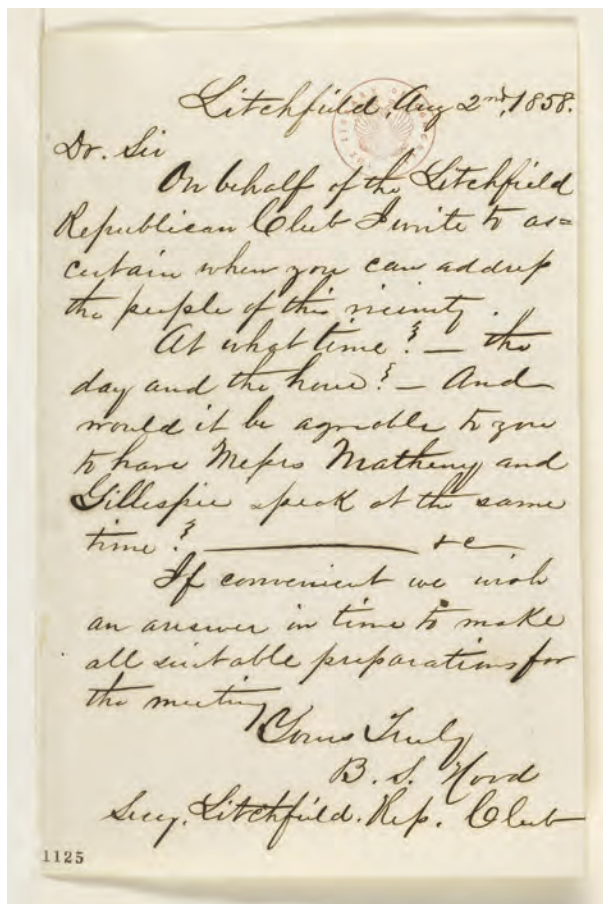 Litchfield, Aug 2nd, 1858.
Dr. Sir
On behalf of the Litchfield
Republican Club I write to as=
certain when you can address
the people of this vicinity.
At what time? — the
day and the hour? — And
would it be agreable to you
to have Messrs Matheny and
Gillespie speak at the same
time? ——— &c
If convenient we wish
an answer in time to make
all suitable preparations for
the meeting
Yours Truly
B. S. Hood
Secy. Litchfield. Rep. Club
1125